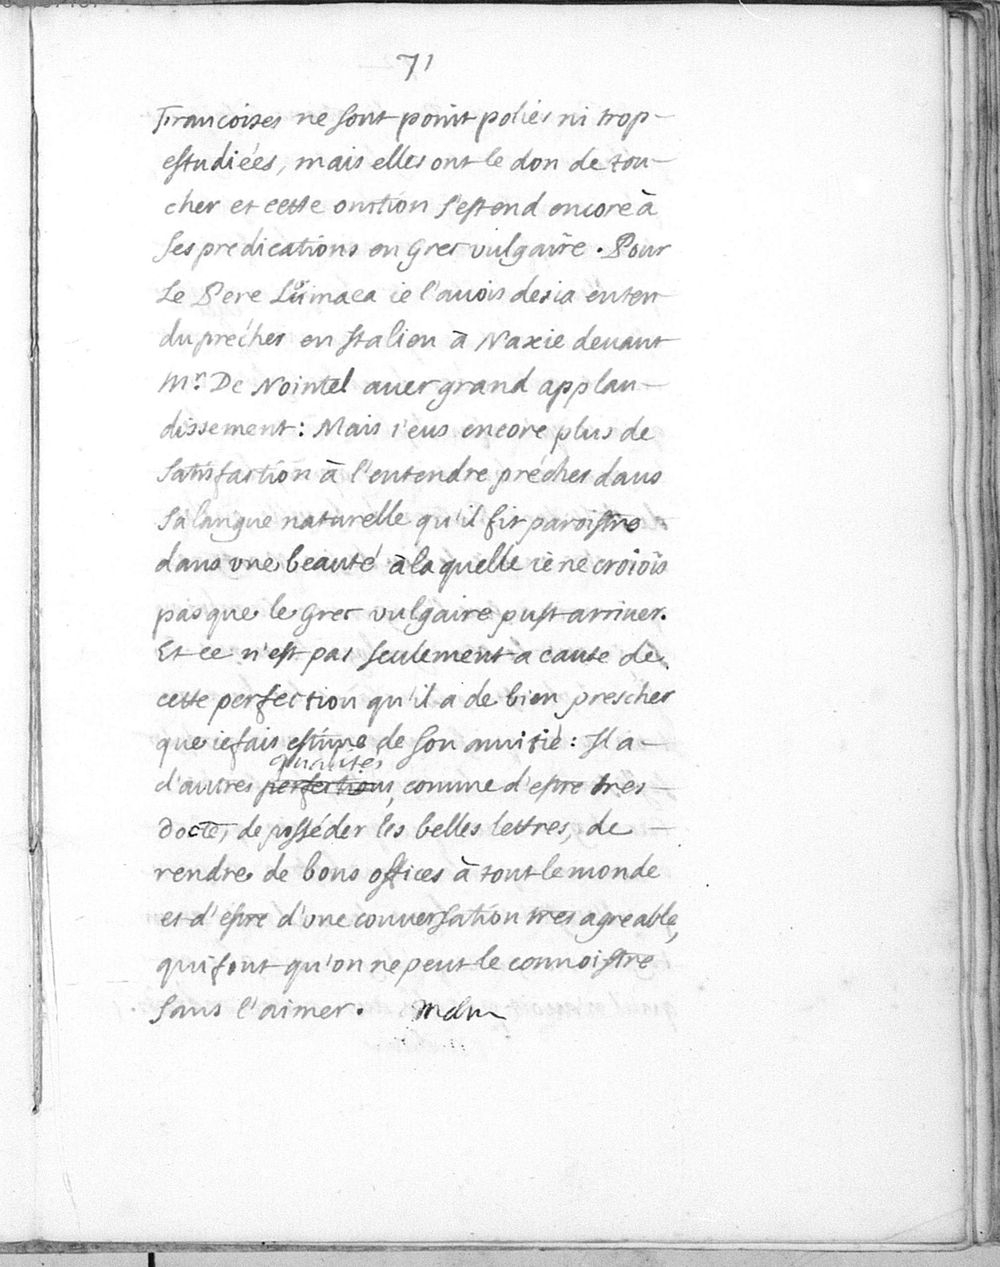 71
Francoises ne sont point polies ni trop
estudiées, mais elles ont le don de tou-
cher et cette onction s'estend encore à
ses predications en Grec vulgaire. Pour
Le Pere Lumaca ie l'auois desia enten
du précher en Italien à Naxie deuant
Mr. De Nointel auec grand applau-
dissement: Mais i'eus encore plus de
satisfaction à l'entendre précher dans
sa langue naturelle qu'il fit paroistre
dans vne beauté à laquelle ie ne croiois
pas que le Grec vulgaire pust arriuer.
Et ce n'est pas seulement a cause de
cette perfection qu'il a de bien prescher
que ie fais estime de son amitié: Il a
qualités
d'autres perfections, comme d'estre tres
docte, de posséder les belles lettres, de
rendre de bons offices à tout le monde
et d'estre d'vne conuersation tres agreable,
qui font qu'on ne peut le connoistre
sans l'aimer.